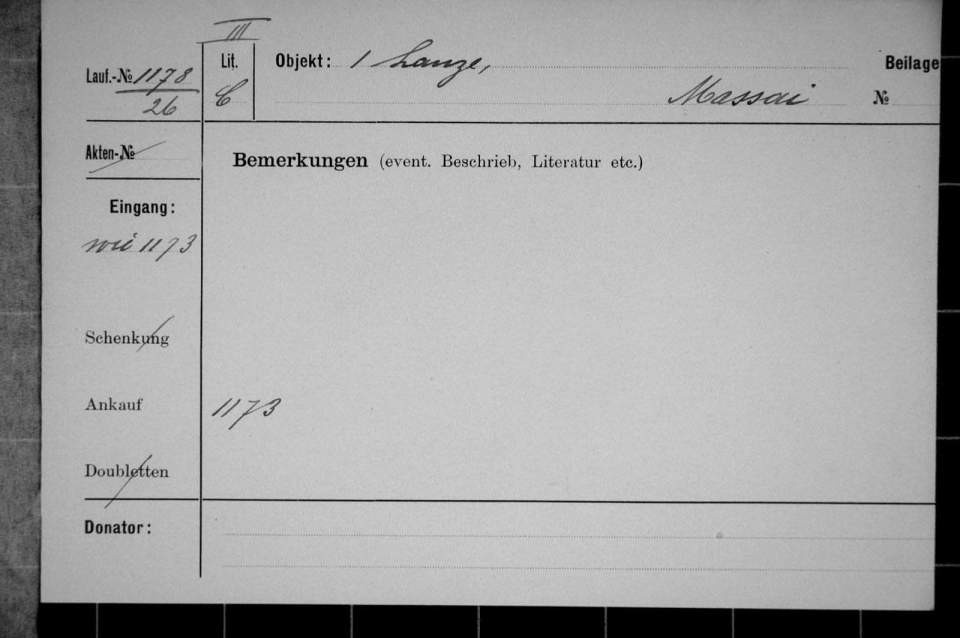 III
Lauf.-№ 1178
26
Lit.
C
Objekt: 1 Lanze,
Massai
Beilage
№
Akten-№
Bemerkungen (event. Beschrieb, Literatur etc.)
Eingang:
wie 1173
Schenkung
Ankauf 1173
Doubletten
Donator: